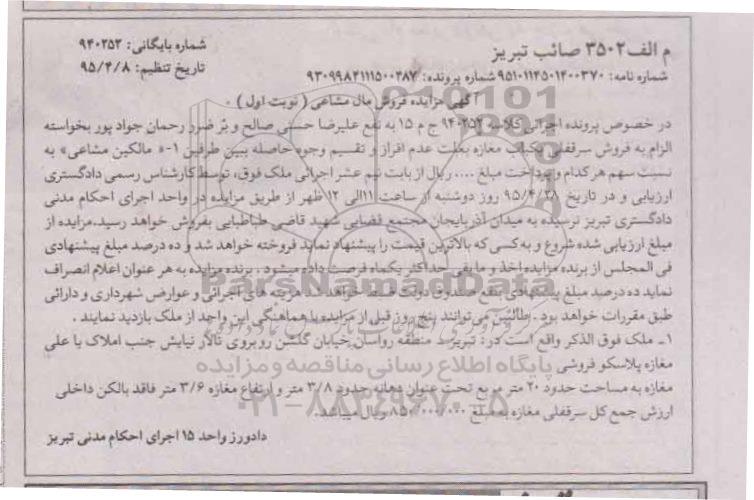 م الف ۳۵۰۲ صائب تبریز
شماره بایگانی: ۹۴۰۲۵۲
شماره نامه: ۹۵۱۰۱۱۴۵۰۱۴۰۰۳۷۰ شماره پرونده: ۹۳۰۹۹۸۴۱۱۱۵۰۰۲۸۷
تاریخ تنظیم: ۹۵/۴/۸
آگهی مزایده فروش مال مشاعی ( نوبت اول )
در خصوص پرونده اجرائی کلاسه ۹۴۰۲۵۲ ج م ۱۵ به نفع علیرضا حسنی صالح و بر ضرر رحمان جواد پور بخواسته
الزام به فروش سرقفلی یکباب مغازه بعلت عدم افراز و تقسیم وجوه حاصله بین طرفین ۱-« مالکین مشاعی» به
نسبت سهم هر کدام و پرداخت مبلغ .... ریال از بابت نیم عشر اجرائی ملک فوق، توسط کارشناس رسمی دادگستری
ارزیابی و در تاریخ ۹۵/۴/۲۸ روز دوشنبه از ساعت ۱۱ الی ۱۲ ظهر از طریق مزایده در واحد اجرای احکام مدنی
دادگستری تبریز نرسیده به میدان آذربایجان مجتمع قضایی شهید قاضی طباطبایی بفروش خواهد رسید.مزایده از
مبلغ ارزیابی شده شروع و به کسی که بالاترین قیمت را پیشنهاد نماید فروخته خواهد شد و ده درصد مبلغ پیشنهادی
فی المجلس از برنده مزایده اخذ و مابقی حداکثر یکماه فرصت داده میشود . برنده مزایده به هر عنوان اعلام انصراف
نماید ده درصد مبلغ پیشنهادی بنفع صندوق دولت ضبط خواهد شد هزینه های اجرائی و عوارض شهرداری و دارائی
طبق مقررات خواهد بود . طالبین می توانند پنج روز قبل از مزایده با هماهنگی این واحد از ملک بازدید نمایند .
۱ـ ملک فوق الذکر واقع است در : تبریز منطقه رواسان خیابان گلشن روبروی تالار نیایش جنب املاک یا علی
مغازه پلاسکو فروشی
مغازه به مساحت حدود ۲۰ متر مربع تحت عنوان دهانه حدود ۳/۸ متر و ارتفاع مغازه ۳/۶ متر فاقد بالکن داخلی
ارزش جمع کل سرقفلی مغازه به مبلغ ۸۵۰/۰۰۰/۰۰۰ ریال میباشد.
دادورز واحد ۱۵ اجرای احکام مدنی تبریز
ParsNamadData
پایگاه اطلاع رسانی مناقصه و مزایده
۰۲۱-۸۸۳۴۹۶۷۰-۵